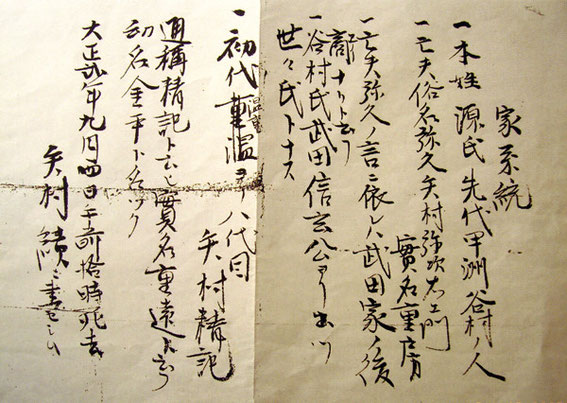 家系統
一本姓 源氏 先代甲洲谷村ノ人
一亡夫俗名弥久矢村弥次右エ門
實名重房
一亡夫弥久ノ言ニ依レハ武田家ノ後
裔ナリト云フ
一谷村氏武田信玄公ヨリ出ツ
世々氏トナス
一初代重温ヨリ八代目
矢村精記
通稱精記ト云ヒ實名重遠ト云フ
幼名金平ト名ツク
大正弐年九月四日午前拾時死去
矢村